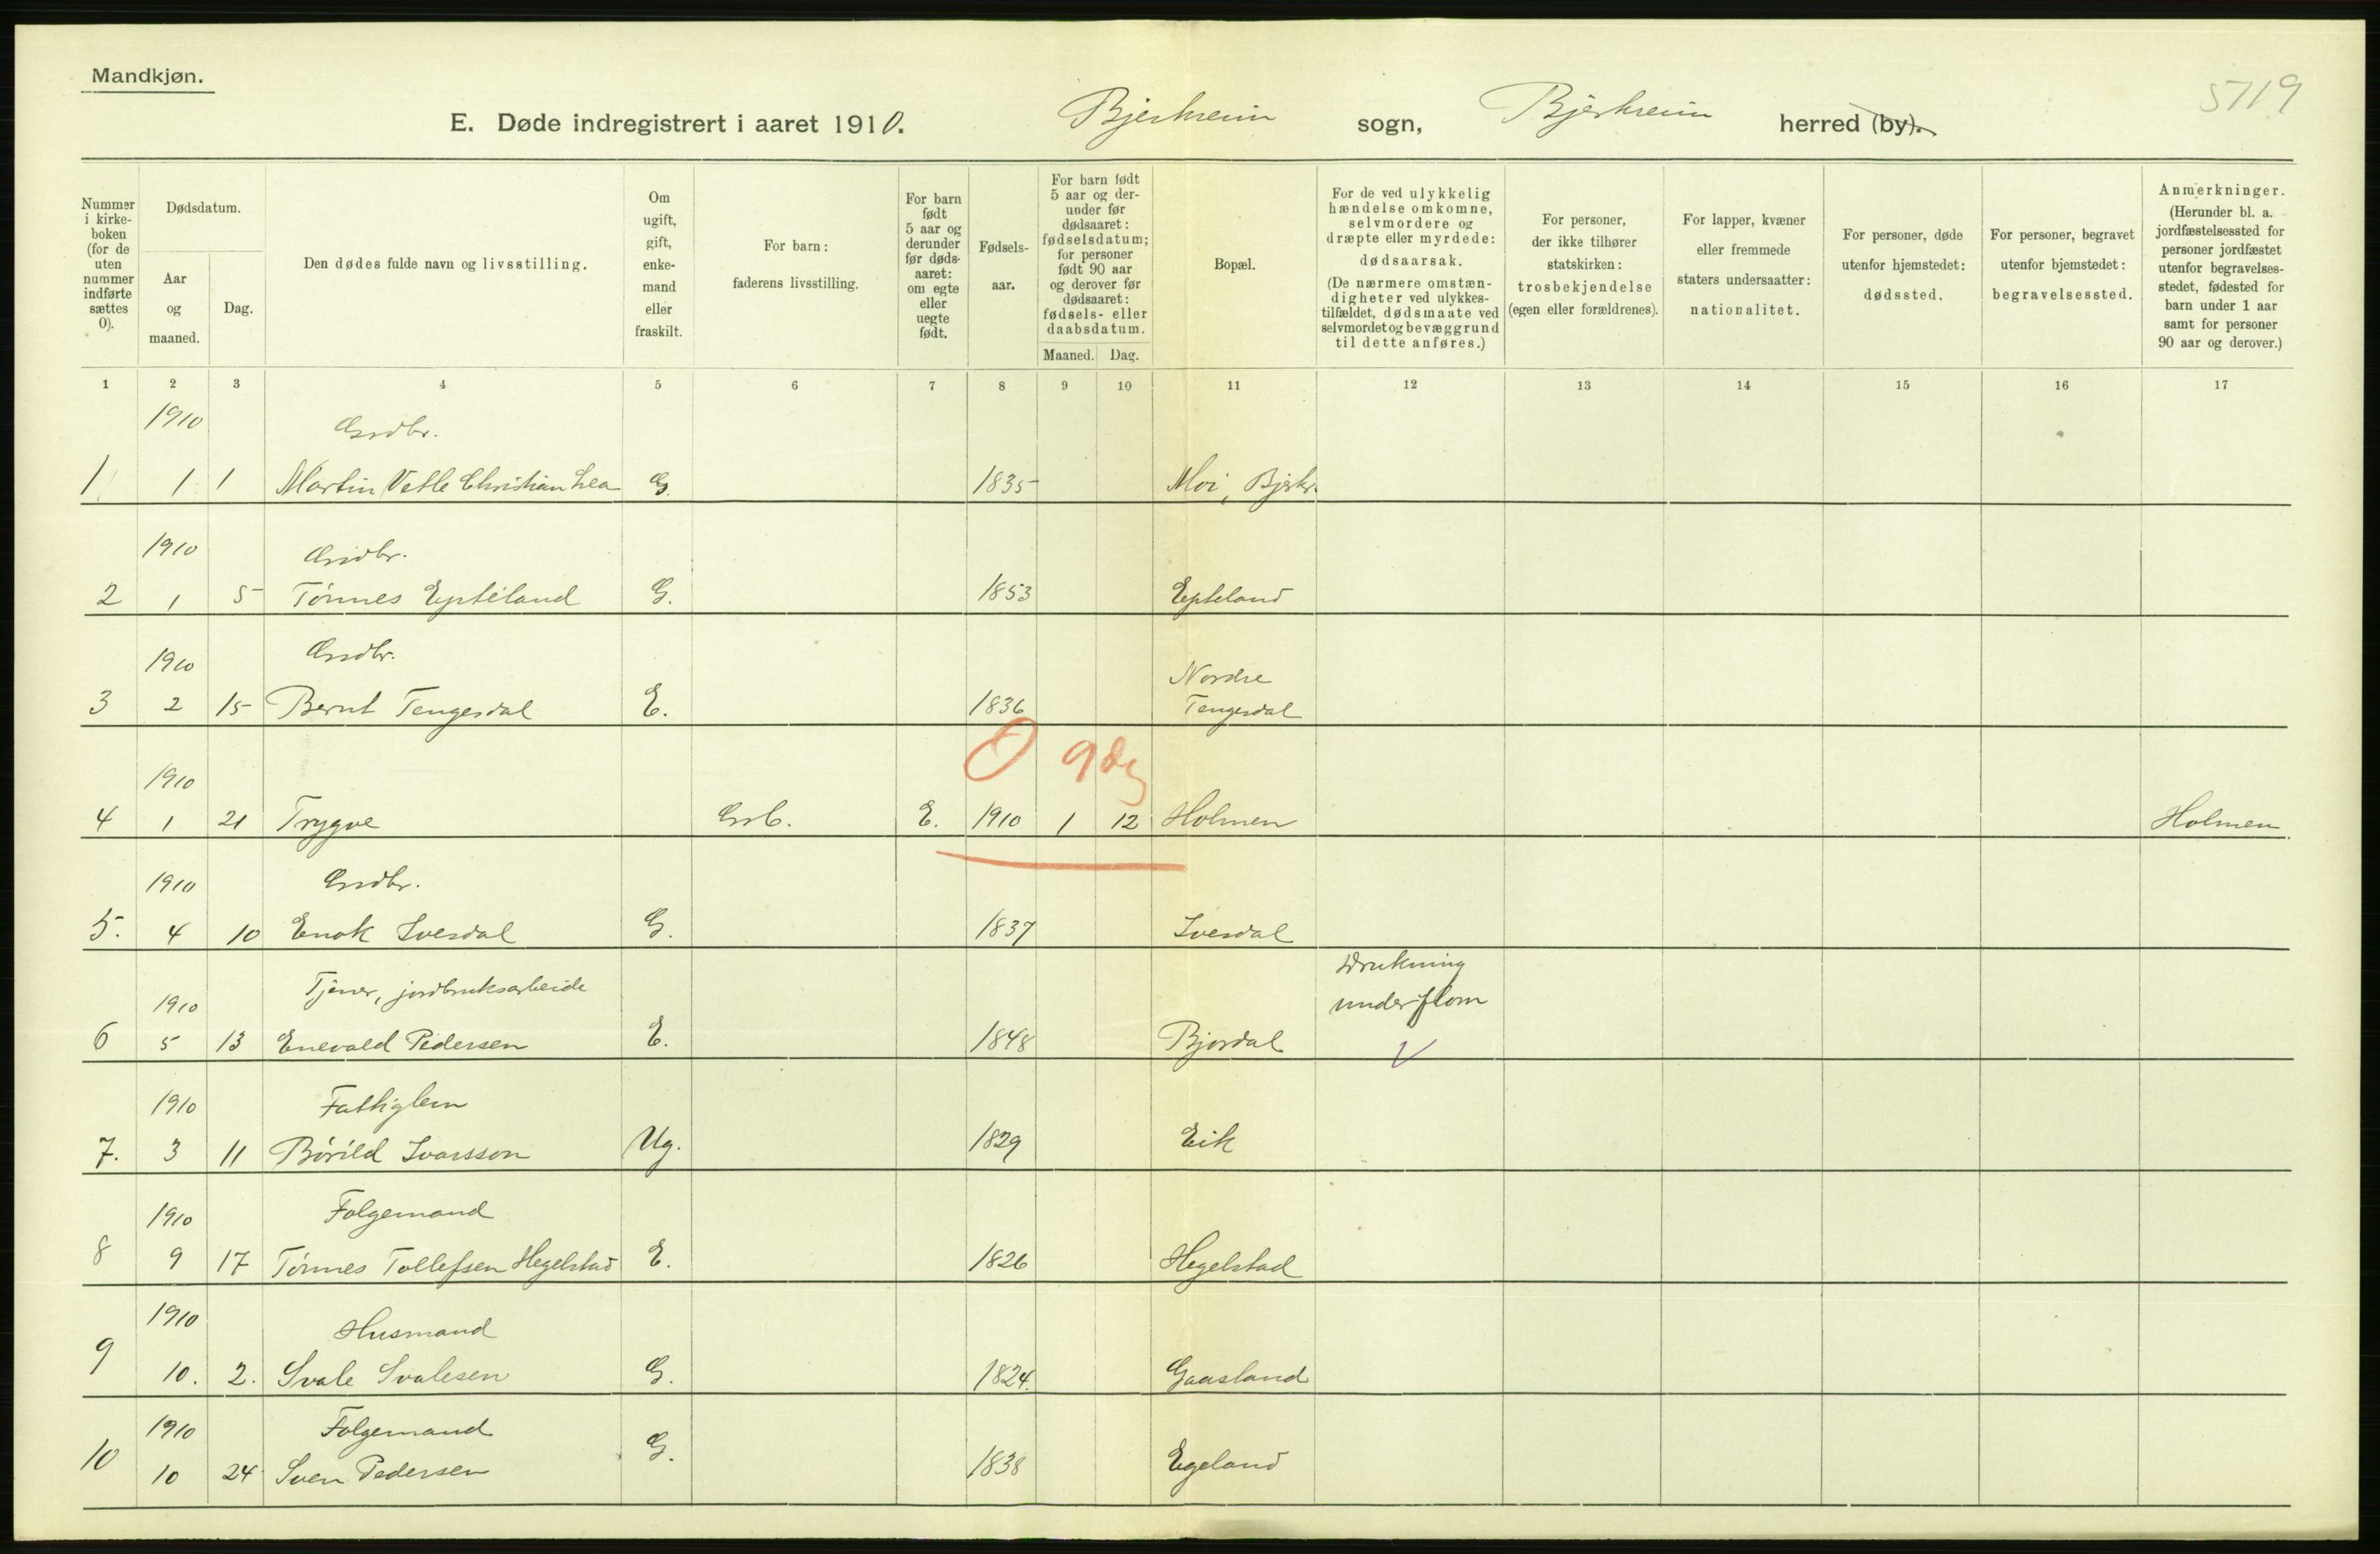 Mandkjøn.
5719
E. Døde indregistrert i aaret 1910. Bjerkreim sogn, Bjerkreim herred (by).
Nummer i kirke-boken (for de uten nummer indførte sættes 0).
Dødsdatum.
Aar og maaned.
Dag.
Den dødes fulde navn og livsstilling.
Om ugift, gift, enke-mand eller fraskilt.
For barn: faderens livsstilling.
For barn født 5 aar og derunder før døds-aaret: om egte eller uegte født.
Fødsels-aar.
For barn født 5 aar og der-under før dødsaaret: fødselsdatum; for personer født 90 aar og derover før dødsaaret: fødsels- eller daabsdatum.
Maaned. Dag.
Bopæl.
For de ved ulykkelig hændelse omkomne, selvmordere og dræpte eller myrdede: dødsaarsak.
(De nærmere omstæn-digheter ved ulykkes-tilfældet, dødsmaate ved selvmordet og bevæggrund til dette anføres.)
For personer, der ikke tilhører statskirken: trosbekjendelse (egen eller forældrenes).
For lapper, kvæner eller fremmede staters undersaatter: nationalitet.
For personer, døde utenfor hjemstedet: dødssted.
For personer, begravet utenfor hjemstedet: begravelsessted.
Anmerkninger.
(Herunder bl. a. jordfæstelsessted for personer jordfæstet utenfor begravelses-stedet, fødested for barn under 1 aar samt for personer 90 aar og derover.)
1 2 3 4 5 6 7 8 9 10 11 12 13 14 15 16 17
1910 Grdbr.
1 1 1 Martin Vetle Christian Lea G. 1835 Moi, Bjerkr.
1910 Grdbr.
2 1 5 Tönnes Epteland G. 1853 Epteland
1910 Grdbr. Nordre
3 2 15 Bernt Tengesdal E. 1836 Tengesdal
0 9 dg
1910
4 1 21 Trygve Grb. E. 1910 1 12 Holmen Holmen
1910 Grdbr.
5. 4 10 Enok Ivesdal G. 1837 Ivesdal
Drukning
1910 Tjener, jordbruksarbeide under flom
6 5 13 Enevald Pedersen E. 1848 Bjordal
1910 Fattiglem
7. 3 11 Börild Ivarsson Ug. 1829 Eik
1910 Folgemand
8 9 17 Tönnes Tollefsen Hegelstad E. 1826 Hegelstad
1910 Husmand
9 10. 2. Svale Svalesen G. 1824. Gaasland
1910 Folgemand
10 10 24 Sven Pedersen G. 1838 Egeland